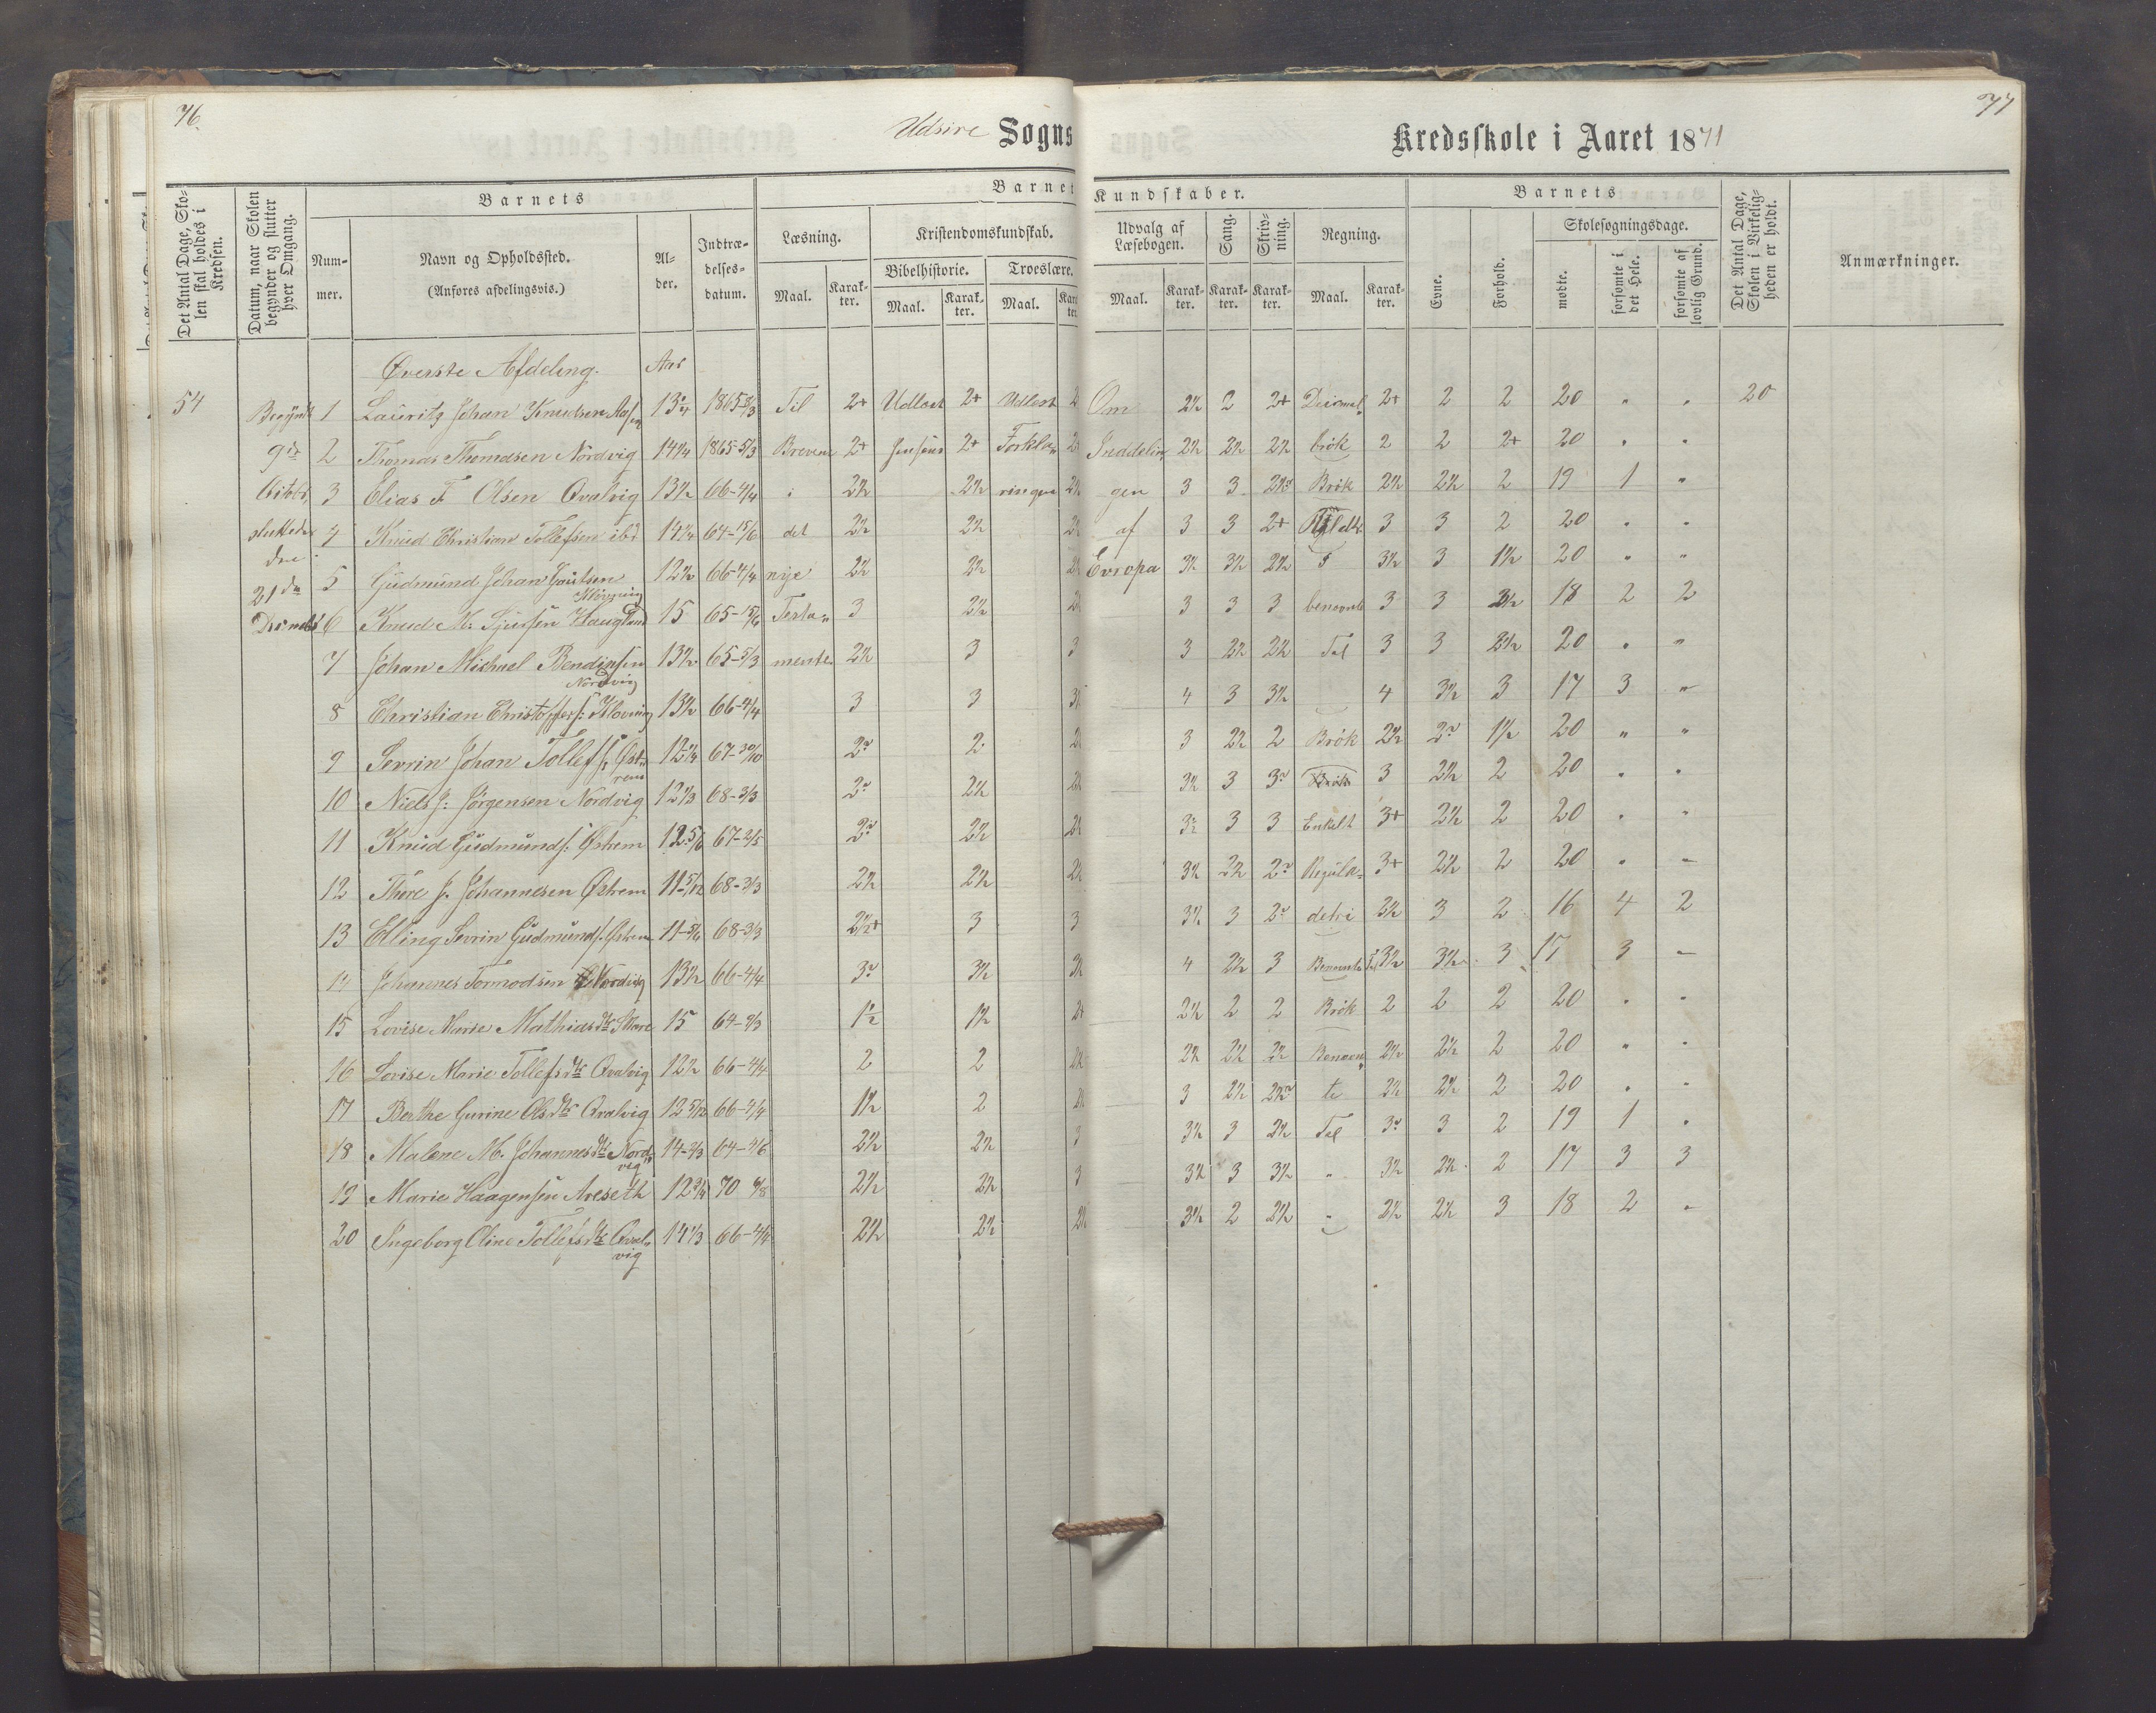 76.
77
Udsire Sogns
Kredsskole i Aaret 1871
Det Antal Dage, Skolen skal holdes i Kredsen.
Datum, naar Skolen begynder og slutter hver Omgang.
Barnets
Nummer.
Navn og Opholdssted.
(Anføres afdelingsvis.)
Alder.
Indtrædelsesdatum.
Barnets Kundskaber.
Læsning.
Maal. Karakter.
Kristendomskundskab.
Bibelhistorie. Troeslære.
Maal. Karakter. Maal. Karakter.
Udvalg af Læsebogen.
Maal. Karakter.
Sang. Karakter.
Skrivning. Karakter.
Regning.
Maal. Karakter.
Barnets
Evne. Forhold.
Skolesøgningsdage.
mødte. forsømte i det Hele. forsømte af lovlig Grund.
Det Antal Dage, Skolen i Virkeligheden er holdt.
Anmærkninger.
Øverste Afdeling. Aar
54 Begyndt 1 Lauritz Johan Knudsen 1865 Til 2+ Udlæst 2+ Udlæst 2 Om 2½ 2 2+ Decimal 2+ 2 2 20 " " 20
9de 2 Thomas Thomasen Nordvig 14¼ 1865-5/3 Brevene 2+ Jensens 2+ Forkla= Inddelin 2½ 2½ 2½ brök 2 2 2+ 20 " "
3 Elias F. Olsen Qvalvig 13½ 66-4/4 i 2½ 2½ ringen gen 3 3 Brök 2½ 2½ 2 19 1 "
sluttede 4 Knud Christian Tollefsen ibd 14¼ 64-15/6 det 2½ 2½ af 3 3 2+ 3 3 2 20 " "
den 21de 5 Gudmund Johan Klovning 12½ 66-4/4 nye 2½ 2½ Evropa 3½ 3½ 2½ 3½ 3 1½ 20 " "
6 Knud M. Sjursen Haugland 15 65-15/6 Testa= 3 2½ 3 3 3 benævnte 3 3 2½ 18 2 2
7 Johan Michael Bendixsen Nordvig 13½ 65-5/3 mente 2½ 3 3 3 2½ 2½ Tal 3 3 2½ 20 " "
8 Christian Christoffers: Klovning 13½ 66-4/4 3 3 4 3 3½ 4 3½ 3 17 3 "
9 Sevrin Johan Tollefs: Østrem 12¼ 67-30/10 2 3 2½ 2 Brök 2½ 1½ 20 " "
10 Niels J: Jörgensen Nordvig 12⅓ 68-3/3 2½ 3½ 3 3 2½ 2 20 " "
11 Knud Gudmunds: Østrem 12 5/6 67-2/5 2½ 3 3 Enkelt 3+ 2½ 2 20 " "
12 Thore J. Johannesen Østrem 11 5/12 68-3/3 2½ 2½ 3½ 2½ Regula= 3+ 2½ 2 20 " "
13 Elling Sevrin Gudmunds: Østrem 11-5/6 68-3/3 2½+ 3 3 3½ 3 detri 3½ 3 2 16 4 2
14 Johannes Tormodsen Nordvig 13½ 66-4/4 3½ 4 2½ 3 3½ 3½ 3 17 3 "
15 Lovise Marie Mathiasdtr Skare 15 64- 1½ 1½ 2½ 2 2 Brök 2 2 2 20 " "
16 Lovise Marie Tollefsdtr Qvalvig 12½ 66-4/4 2 2 2½ 2½ 2½ Benævn= 2½ 2½ 2 20 " "
17 Berthe Gurine Olsdtr Qvalvig 12 5/12 66-4/4 1½ 2 3 2½ te 2½ 2½ 2 20 " "
18 Malene M. Johannesdtr Nordvig 14-2/3 64- 2½ 2½ 3 3½ 3 2½ Tal 3 2 19 1 "
19 Marie Haagensen Areseth 12¾ 70 2½ 2½ 3 3½ 3 3½ " 3½ 2½ 2 17 3 3
20 Ingeborg Oline Tollefsdtr Qvalvig 14⅓ 66-4/4 2½ 2½ 3½ 2 2½ " 2½ 2½ 3 18 2 "